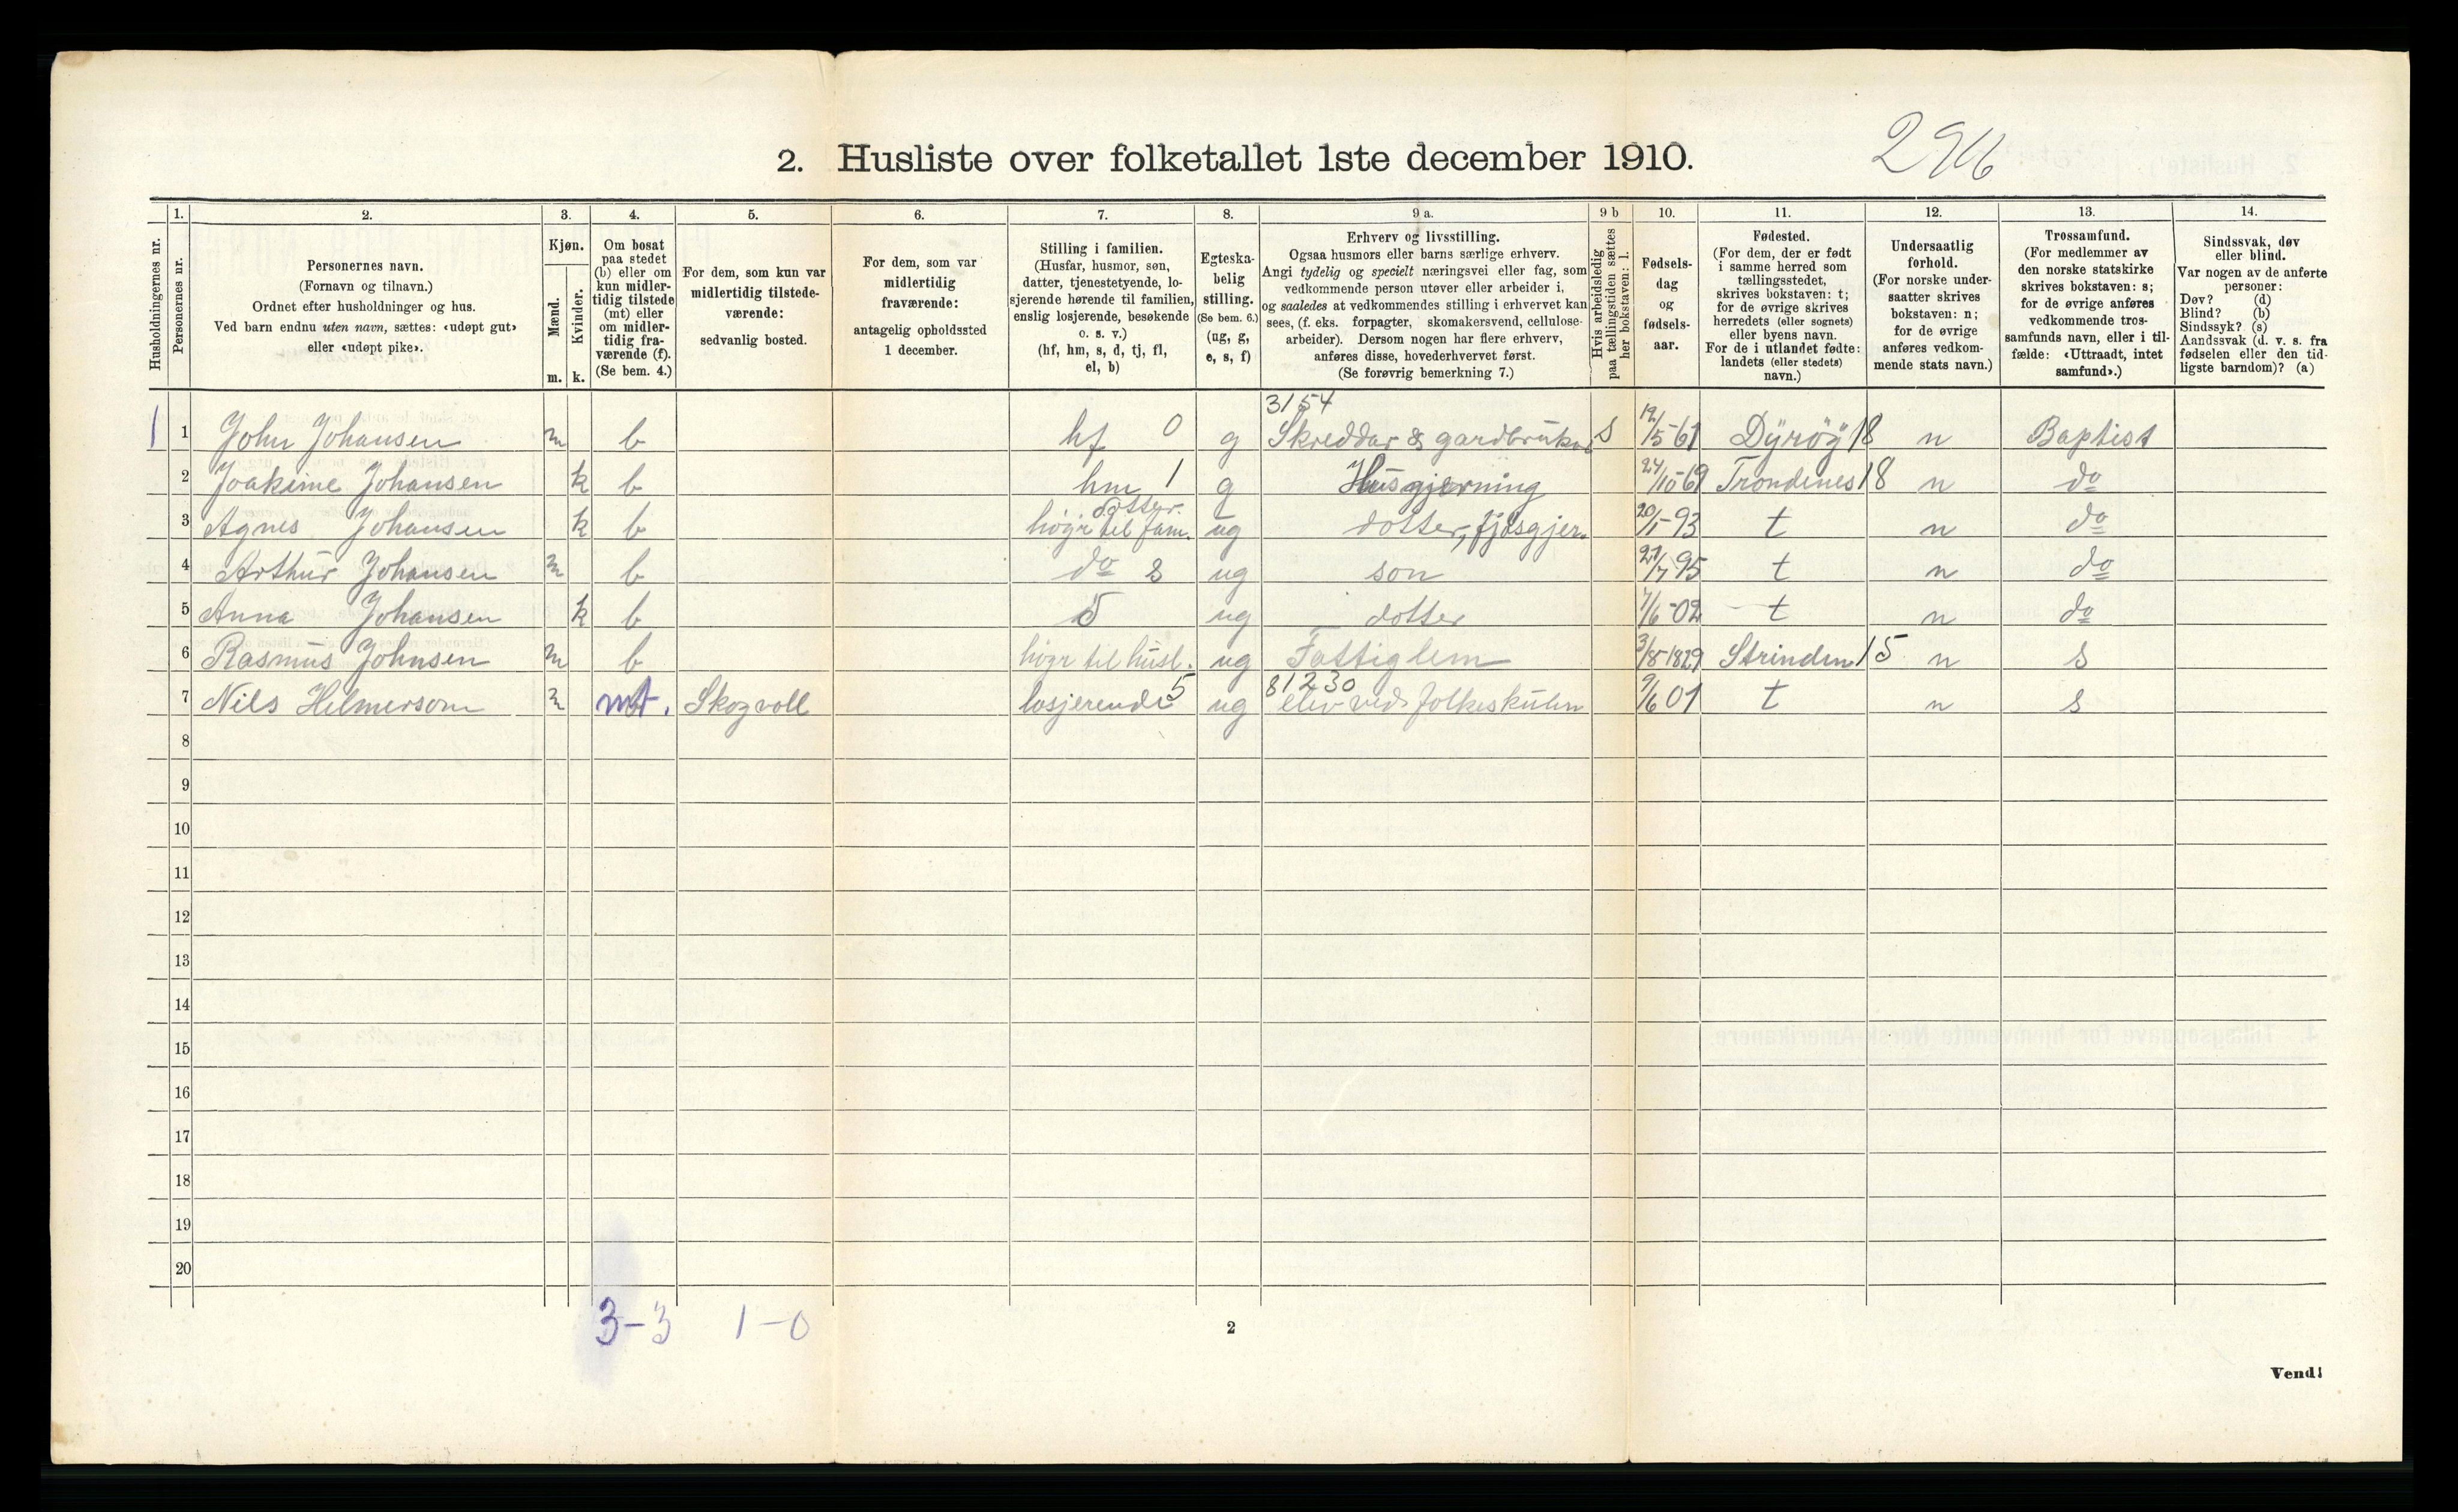 2. Husliste over folketallet 1ste december 1910.
Husholdningernes nr.
1.
Personernes nr.
2.
Personernes navn.
(Fornavn og tilnavn.)
Ordnet efter husholdninger og hus.
Ved barn endnu uten navn, sættes: «udøpt gut»
eller «udøpt pike».
3.
Kjøn.
Mænd.
Kvinder.
m. k.
4.
Om bosat
paa stedet
(b) eller om
kun midler-
tidig tilstede
(mt) eller
om midler-
tidig fra-
værende (f).
(Se bem. 4.)
5.
For dem, som kun var
midlertidig tilstede-
værende:
sedvanlig bosted.
6.
For dem, som var
midlertidig
fraværende:
antagelig opholdssted
1 december.
7.
Stilling i familien.
(Husfar, husmor, søn,
datter, tjenestetyende, lo-
sjerende hørende til familien,
enslig losjerende, besøkende
o. s. v.)
(hf, hm, s, d, tj, fl,
el, b)
8.
Egteska-
belig
stilling.
(Se bem. 6.)
(ug, g,
e, s, f)
9 a.
Erhverv og livsstilling.
Ogsaa husmors eller barns særlige erhverv.
Angi tydelig og specielt næringsvei eller fag, som
vedkommende person utøver eller arbeider i,
og saaledes at vedkommendes stilling i erhvervet kan
sees, (f. eks. forpagter, skomakersvend, cellulose-
arbeider). Dersom nogen har flere erhverv,
anføres disse, hovederhvervet først.
(Se forøvrig bemerkning 7.)
9 b
Hvis arbeidsledig
paa tællingstiden sættes
her bokstaven: l.
10.
Fødsels-
dag
og
fødsels-
aar.
11.
Fødested.
(For dem, der er født
i samme herred som
tællingsstedet,
skrives bokstaven: t;
for de øvrige skrives
herredets (eller sognets)
eller byens navn.
For de i utlandet fødte:
landets (eller stedets)
navn.)
12.
Undersaatlig
forhold.
(For norske under-
saatter skrives
bokstaven: n;
for de øvrige
anføres vedkom-
mende stats navn.)
13.
Trossamfund.
(For medlemmer av
den norske statskirke
skrives bokstaven: s;
for de øvrige anføres
vedkommende tros-
samfunds navn, eller i til-
fælde: «Uttraadt, intet
samfund».)
14.
Sindssvak, døv
eller blind.
Var nogen av de anførte
personer:
Døv? (d)
Blind? (b)
Sindssyk? (s)
Aandssvak (d. v. s. fra
fødselen eller den tid-
ligste barndom)? (a)
3154
1 1 John Johansen m b hf 0 g Skreddar & gardbrukar s 12/5-61 Dyrøy 18 n Baptist
2 Joakime Johansen k b hm 1 g Husgjerning 24/10-69 Trondenes 18 n do
dotter.
3 Agnes Johansen k b högr til fam. ug dotter, fjøsgjer. 20/1-93 t n do
4 Arthur Johansen m b do s ug son 21/7-95 t n do
5 Anna Johansen k b ug dotter 7/6-02 t n do
6 Rasmus Johnsen m b högr til husl. ug Fattiglem 3/8-1829 Strinden 15 n s
81230
7 Nils Helmersom m mt. Skogvoll losjerende 5 ug elev ved folkeskulen 9/6 01 t n s
8
9
10
11
12
13
14
15
16
17
18
19
20
3-3 1-0
2
Vend!